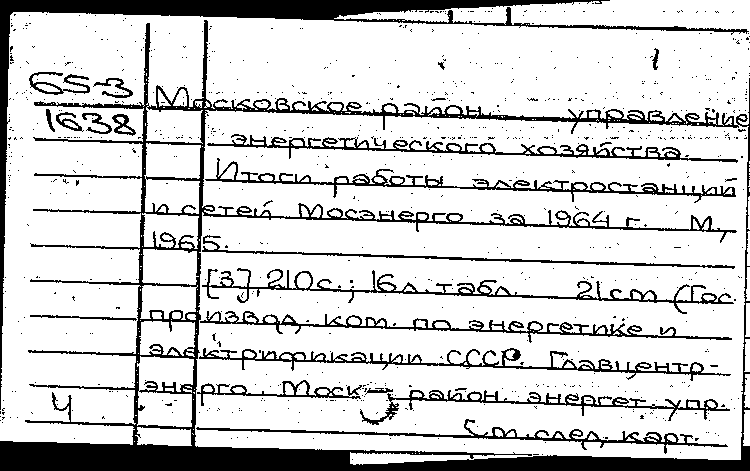 1
65-3 Московское район. управление
1638 энергетического хозяйства.
Итоги работы электростанций
и сетей Мосэнерго за 1964 г. М.,
1965.
[3], 210 с.; 16 л. табл. 21 cm (Гос.
производ. ком. по энергетике и
электрификации СССР. Главцентр-
энерго. Моск. район. энергет. упр.
Ч См. след. карт.